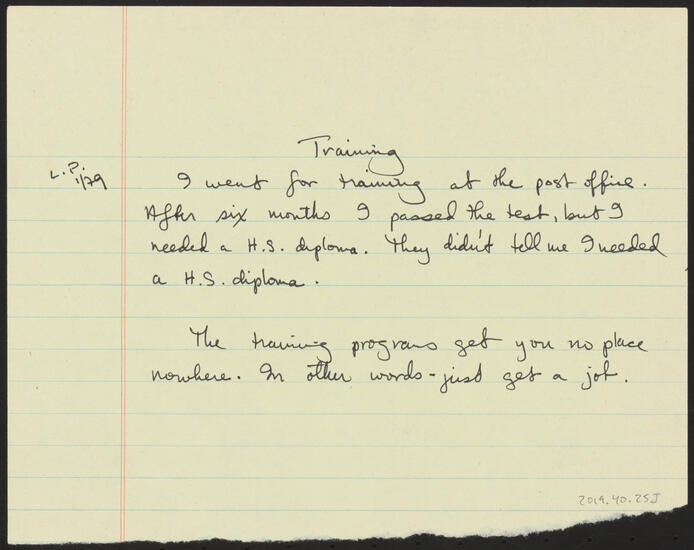 Training
L.P.
1/79
I went for training at the post office.
After six months I passed the test, but I
needed a H.S. diploma. They didn't tell me I needed
a H.S. diploma.
The training programs get you no place
nowhere. In other words - just get a job.
2019.40.25J